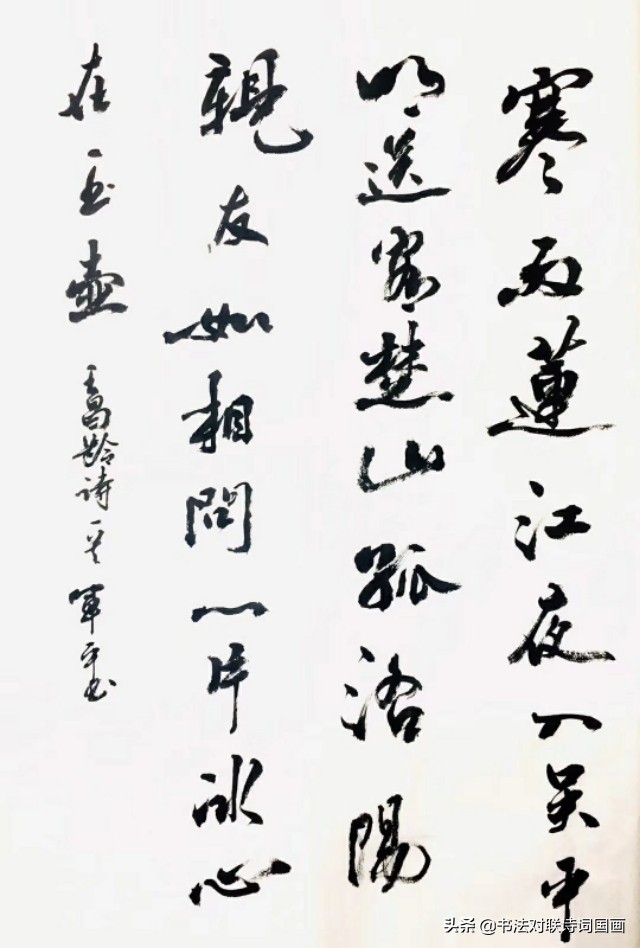 寒雨蓮江夜入吴平
明送客楚山孤洛陽
親友如相問一片冰心
在玉壺 王昌齡詩一首 軍平书
头条 @书法对联诗词国画